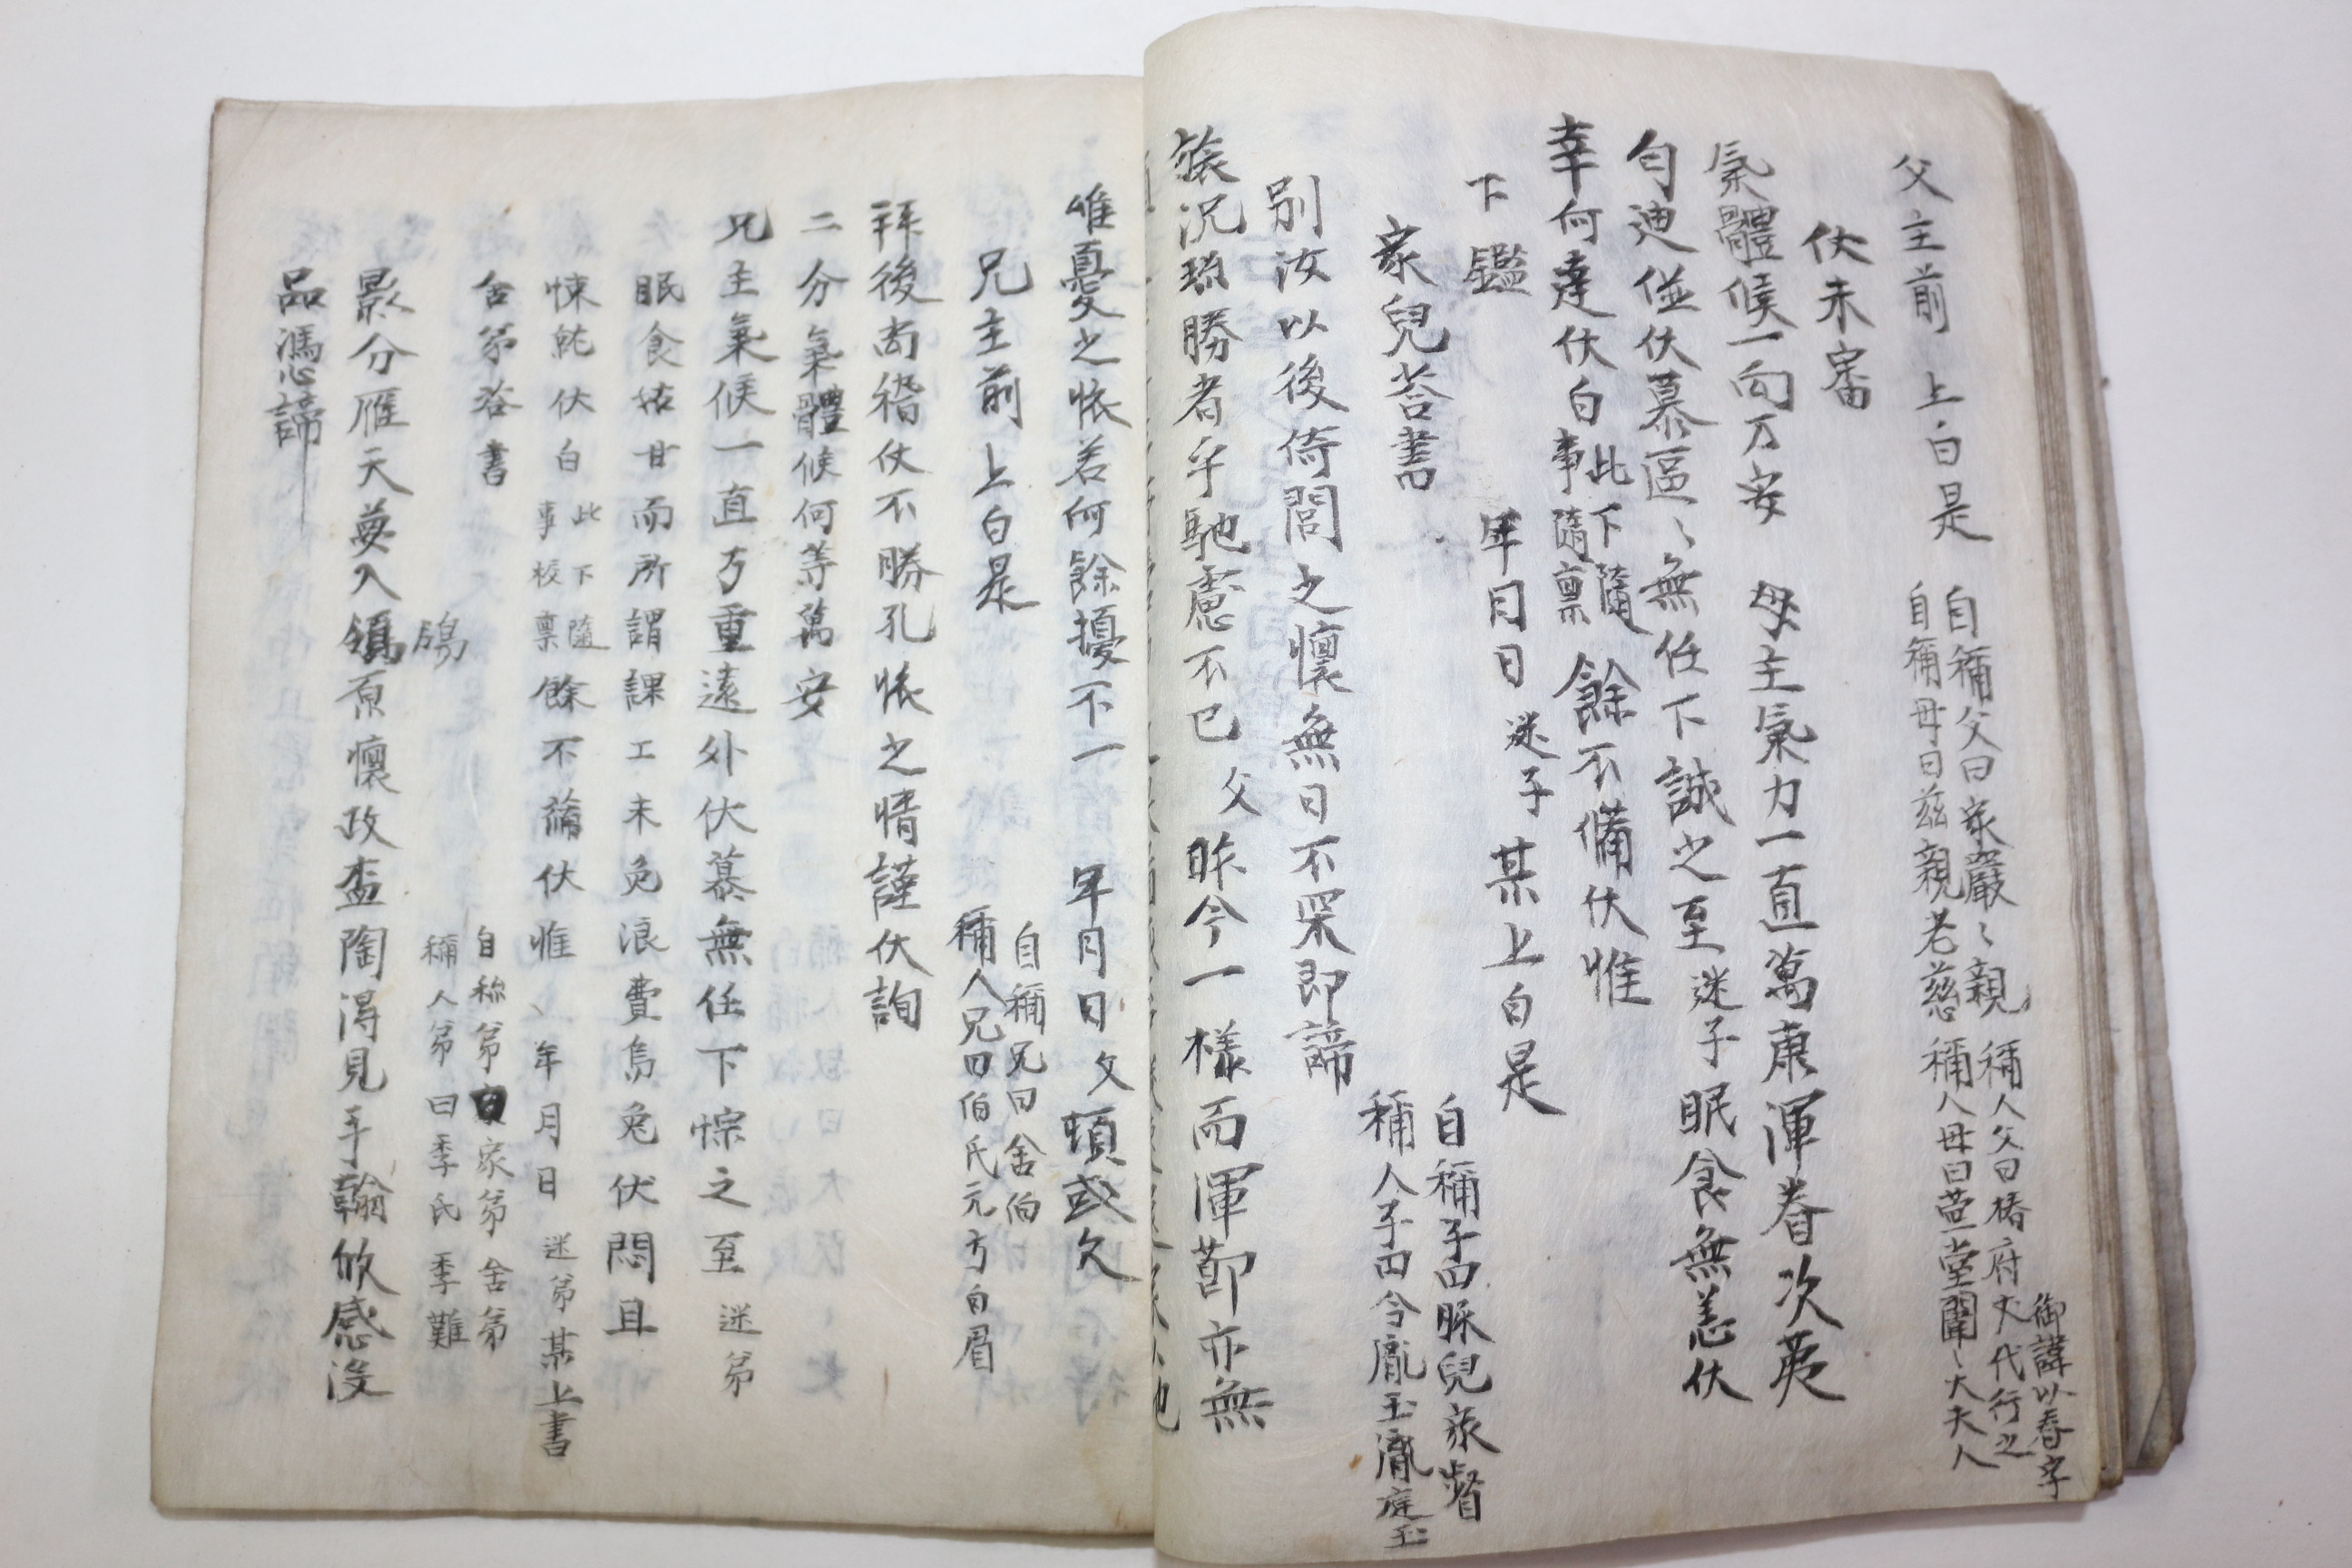 父主前 上白是
自稱父曰家嚴〻親 稱人父曰椿府丈代行之
自稱母曰玆親老慈 稱人母曰萱堂闈〻大夫人
御諱以春字
伏未審
氣體候一向万安 母主氣力一直萬康渾眷次第
勻迪並伏慕區〻無任下誠之至 迷子眠食無恙伏
幸何達伏白 此下隨事隨禀 餘不備伏惟
下鑑 年月日 迷子 某 上白是
家兒答書
自稱子曰豚兒家督
稱人子曰令胤玉胤庭玉
別汝以後倚閭之懷無日不罙即諦
旅況珎勝者乎馳慮不已 父 昨今一樣而渾節亦無
唯憂之悵若何餘擾不一 年月日 父 頓或欠
兄主前 上白是
自稱兄曰舍伯
稱人兄曰伯氏元方白眉
拜後啇稽伏不勝孔悵之情謹伏詢
二分氣體候何等萬安
兄主氣候一直万重遠外伏慕無任下悰之至 迷弟
眠食姑甘而所謂課工未免浪費烏兔伏悶且
悚㤥伏白 此下隨事校禀 餘不備伏惟 年月日 迷弟某上書
舍弟答書
自称弟曰家弟舍弟
稱人弟曰季氏季難
影分雁天夢入鴒原懷政盍陶淂見手翰攸感沒
鴒
品馮諦